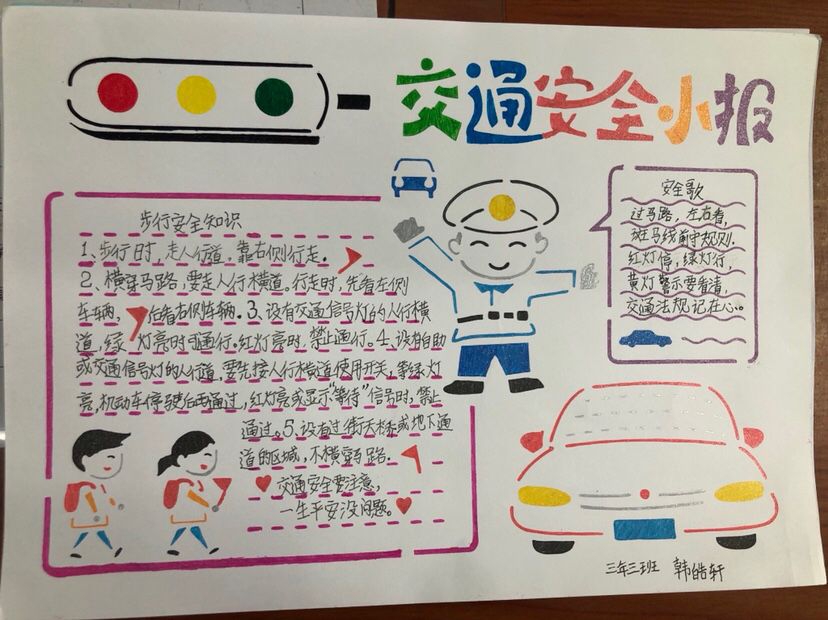 交通安全小报
步行安全知识
1、步行时,走人行道,靠右侧行走.
2、横穿马路,要走人行横道。行走时,先看左侧
车车辆,后看右侧车辆.3、设有交通信号灯的人行横
道,绿灯亮时可通行。红灯亮时,禁止通行。4、设有自助
或交通信号灯的人行道,要先按人行横道使用开关,等绿灯
亮,机动车停驶后再通过,红灯亮或显示“等待”信号时,禁止
通过。5、设有过街天桥或地下通
道的区域,不横穿马路.
交通安全要注意,
一生平安没问题。
安全歌
过马路,左右看,
斑马线前守规则.
红灯停,绿灯行,
黄灯警示要看清,
交通法规记在心。
三年三班 韩皓轩